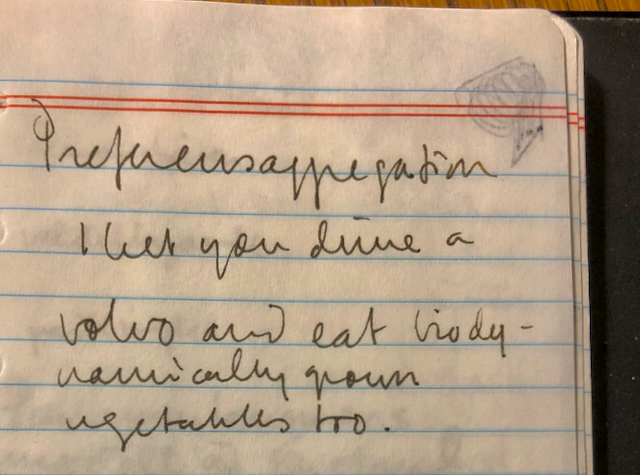 Preferensaggregation
I bet you drive a
volvo and eat biody-
namically grown
vegetables too.